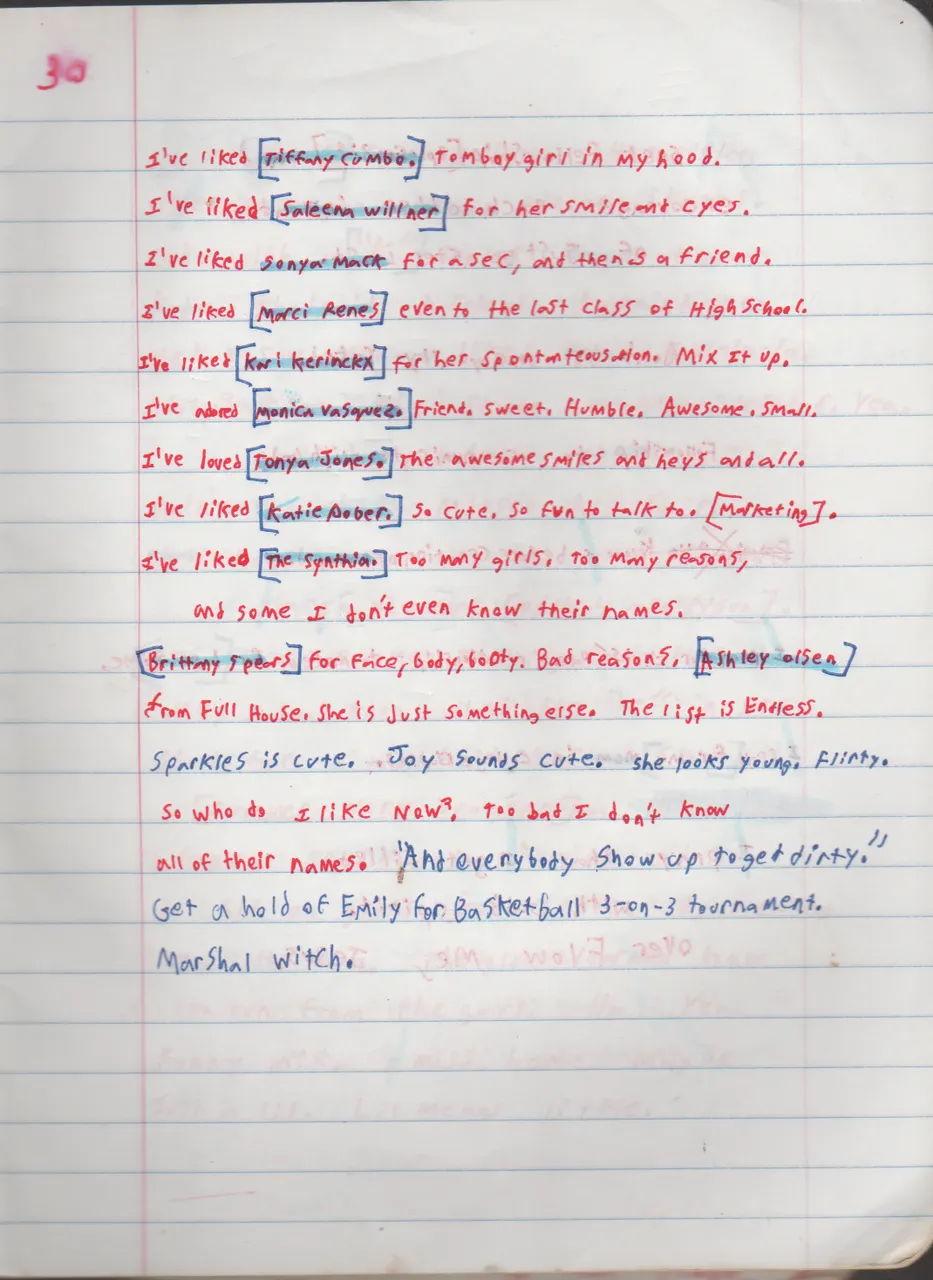 30
I've liked [Tiffany Cumbo.] Tomboy girl in my hood.
I've liked [Saleena Willner] for her smile and eyes.
I've liked Sonya Mack for a sec, and then as a friend.
I've liked [Marci Renes] even to the last class of High School.
I've liked [Kari Kerinckx] for her spontanteousation. Mix It up.
I've adored [Monica Vasquez.] Friend. Sweet. Humble. Awesome. Small.
I've loved [Tonya Jones.] The awesome smiles and heys and all.
I've liked [Katie Dober.] So cute. So fun to talk to. [Marketing].
I've liked [The Synthia.] Too many girls. Too many reasons,
and some I don't even know their names.
[Brittany Spears] for Face, body, booty. Bad reasons. [Ashley Olsen]
from Full House. She is Just something else. The list is Endless.
Sparkles is cute. Joy sounds cute. she looks young. Flirty.
So who do I like Now?. Too bad I don't know
all of their names. "And everybody show up to get dirty."
Get a hold of Emily for Basketball 3-on-3 tournament.
Marshal Witch.